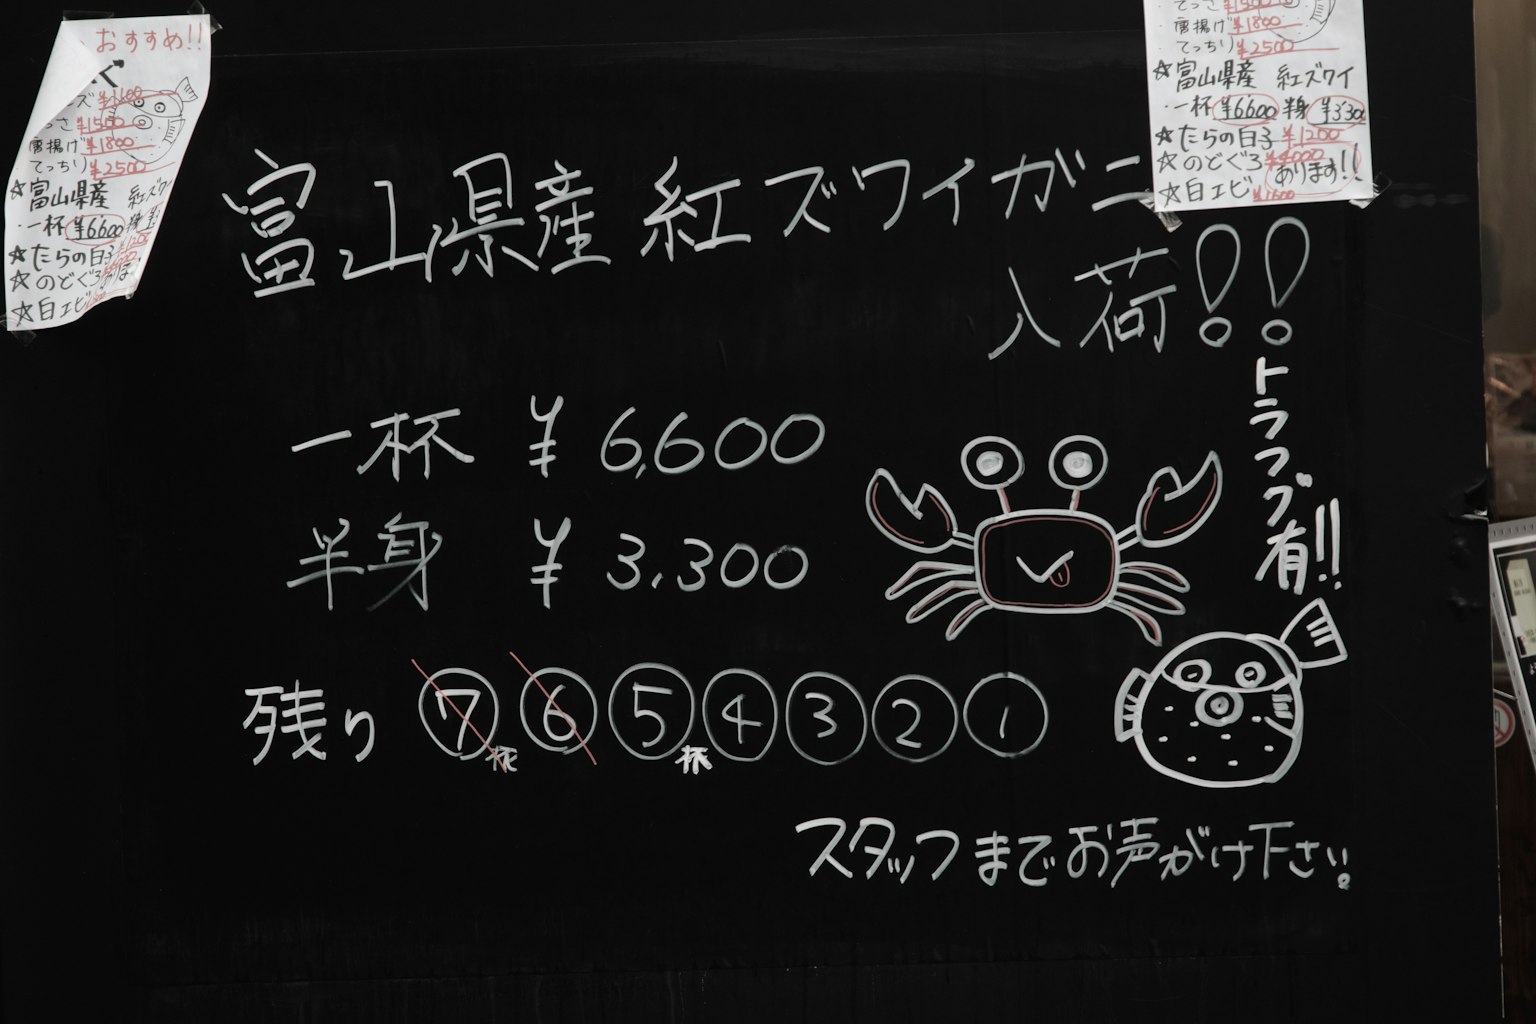 おすすめ!!
ぐ
ズ ¥1100
さ ¥1500
唐揚げ ¥1800
てっちり ¥2500
☆富山県産 紅ズワ
・一杯 ¥6600
☆たらの白子 ¥1200
☆のどぐろ
☆白エビ
てっさ ¥1500
唐揚げ ¥1800
・てっちり ¥2500
☆富山県産 紅ズワイ
・一杯 ¥6600 半身 ¥3300
☆たらの白子 ¥1200
☆のどぐろ ¥4000 あります!!
☆白エビ ¥1600
富山県産 紅ズワイガニ
入荷!!
一杯 ¥6,600
半身 ¥3,300
残り ⑦杯 ⑥ ⑤杯 ④ ③ ② ①
トラフグ有!!
スタッフまでお声がけ下さい。